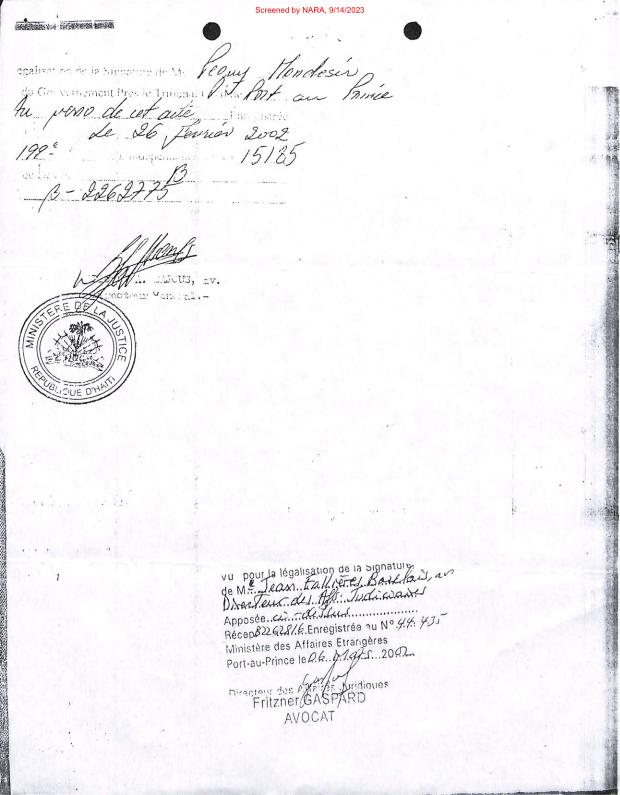 Screened by NARA, 9/14/2023
egalisation de la Signature de Me Peguy Mondesir
du Gouvernement Pres le Tribunal Port au Prince
Au verso de cet acte
Le 26 Fevrier 2002
199e 15185
B
B-2262775
av.
MINISTERE DE LA JUSTICE
REPUBLIQUE D'HAITI
vu pour la légalisation de la Signature
de Me Jean Fallières Bazelais, av
Directeur des Aff. Judiciaires
Apposée ci-dessus
Récep B2262816 Enregistrée au No 44.435
Ministère des Affaires Etrangères
Port-au-Prince le 06 Mars 2002
Directeur des Affaires Juridiques
Fritzner GASPARD
AVOCAT